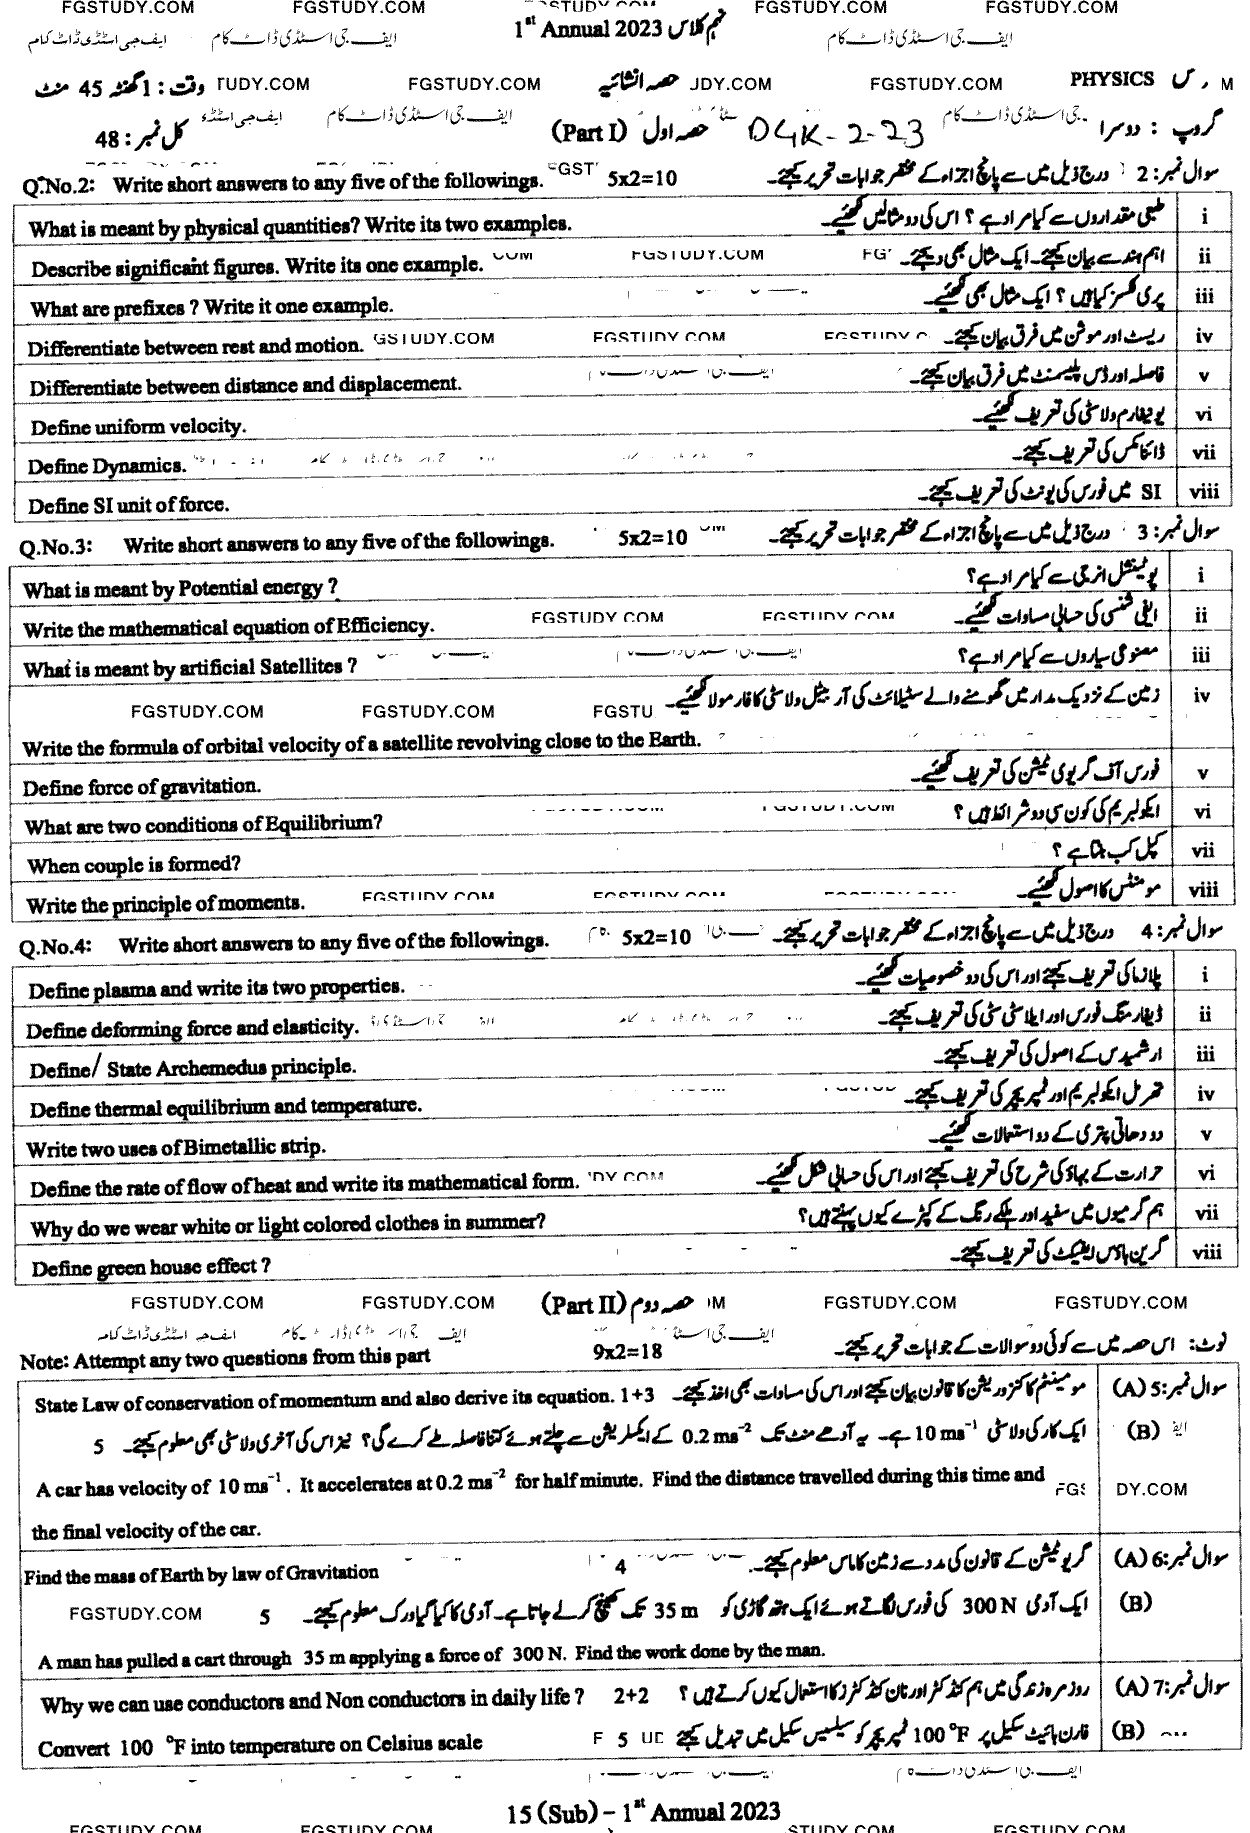 FGSTUDY.COM FGSTUDY.COM FGSTUDY.COM FGSTUDY.COM
1st Annual 2023 نہم کلاس
ایف جی اسٹڈی ڈاٹ کام ایف جی اسٹڈی ڈاٹ کام ایف جی اسٹڈی ڈاٹ کام
وقت : 1 گھنٹہ 45 منٹ TUDY.COM FGSTUDY.COM حصہ انشائیہ JDY.COM FGSTUDY.COM PHYSICS
کل نمبر : 48 (Part I) حصہ اول DGK-2-23 گروپ : دوسرا
Q.No.2: Write short answers to any five of the followings. 5x2=10 سوال نمبر : 2 درج ذیل میں سے پانچ اجزاء کے مختصر جوابات تحریر کیجئے۔
What is meant by physical quantities? Write its two examples. طبیعی مقداروں سے کیا مراد ہے ؟ اس کی دو مثالیں لکھئیے۔ i
Describe significant figures. Write its one example. FGSTUDY.COM اہم ہندسے بیان کیجئے۔ ایک مثال بھی دیجئے۔ ii
What are prefixes ? Write it one example. پری فکسز کیا ہیں ؟ ایک مثال بھی لکھئیے۔ iii
Differentiate between rest and motion. GSTUDY.COM FGSTUDY.COM ریسٹ اور موشن میں فرق بیان کیجئے۔ iv
Differentiate between distance and displacement. فاصلہ اور ڈس پلیسمنٹ میں فرق بیان کیجئے۔ v
Define uniform velocity. یونیفارم ولاسٹی کی تعریف لکھئیے۔ vi
Define Dynamics. ڈائنامکس کی تعریف کیجئے۔ vii
Define SI unit of force. SI میں فورس کی یونٹ کی تعریف کیجئے۔ viii
Q.No.3: Write short answers to any five of the followings. 5x2=10 سوال نمبر : 3 درج ذیل میں سے پانچ اجزاء کے مختصر جوابات تحریر کیجئے۔
What is meant by Potential energy ? پوٹینشل انرجی سے کیا مراد ہے؟ i
Write the mathematical equation of Efficiency. FGSTUDY.COM FGSTUDY.COM ایفی شنسی کی حسابی مساوات لکھئیے۔ ii
What is meant by artificial Satellites ? مصنوعی سیاروں سے کیا مراد ہے؟ iii
FGSTUDY.COM FGSTUDY.COM FGSTU زمین کے نزدیک مدار میں گھومنے والے سٹیلائٹ کی آربیٹل ولاسٹی کا فارمولا لکھئیے۔ iv
Write the formula of orbital velocity of a satellite revolving close to the Earth.
Define force of gravitation. فورس آف گریوی ٹیشن کی تعریف لکھئیے۔ v
What are two conditions of Equilibrium? ایکولبریم کی کون سی دو شرائط ہیں ؟ vi
When couple is formed? کپل کب بنتا ہے ؟ vii
Write the principle of moments. FGSTUDY.COM FGSTUDY.COM مومنٹس کا اصول لکھئیے۔ viii
Q.No.4: Write short answers to any five of the followings. 5x2=10 سوال نمبر : 4 درج ذیل میں سے پانچ اجزاء کے مختصر جوابات تحریر کیجئے۔
Define plasma and write its two properties. پلازما کی تعریف کیجئے اور اس کی دو خصوصیات لکھئیے۔ i
Define deforming force and elasticity. ڈیفارمنگ فورس اور ایلاسٹی سٹی کی تعریف کیجئے۔ ii
Define/ State Archemedus principle. ارشمیدس کے اصول کی تعریف کیجئے۔ iii
Define thermal equilibrium and temperature. تھرمل ایکولبریم اور ٹمپریچر کی تعریف کیجئے۔ iv
Write two uses of Bimetallic strip. دو دھاتی پتری کے دو استعمالات لکھئیے۔ v
Define the rate of flow of heat and write its mathematical form. حرارت کے بہاؤ کی شرح کی تعریف کیجئے اور اس کی حسابی شکل لکھئیے۔ vi
Why do we wear white or light colored clothes in summer? ہم گرمیوں میں سفید اور ہلکے رنگ کے کپڑے کیوں پہنتے ہیں؟ vii
Define green house effect ? گرین ہاؤس ایفیکٹ کی تعریف کیجئے۔ viii
FGSTUDY.COM FGSTUDY.COM (Part II) حصہ دوم FGSTUDY.COM FGSTUDY.COM
Note: Attempt any two questions from this part 9x2=18 نوٹ: اس حصہ میں سے کوئی دو سوالات کے جوابات تحریر کیجئے۔
State Law of conservation of momentum and also derive its equation. 1+3 مومینٹم کا کنزرویشن کا قانون بیان کیجئے اور اس کی مساوات بھی اخذ کیجئے۔ سوال نمبر:5 (A)
5 ایک کار کی ولاسٹی 10 ms⁻¹ ہے۔ یہ آدھے منٹ تک 0.2 ms⁻² کے ایکسلریشن سے چلتے ہوئے کتنا فاصلہ طے کرے گی؟ نیز اس کی آخری ولاسٹی بھی معلوم کیجئے۔ (B)
A car has velocity of 10 ms⁻¹. It accelerates at 0.2 ms⁻² for half minute. Find the distance travelled during this time and DY.COM
the final velocity of the car.
Find the mass of Earth by law of Gravitation 4 گریویٹیشن کے قانون کی مدد سے زمین کا ماس معلوم کیجئے۔ سوال نمبر:6 (A)
FGSTUDY.COM 5 ایک آدمی 300 N کی فورس لگاتے ہوئے ایک ہتھ گاڑی کو 35 m تک کھینچ کر لے جاتا ہے۔ آدمی کا کیا گیا ورک معلوم کیجئے۔ (B)
A man has pulled a cart through 35 m applying a force of 300 N. Find the work done by the man.
Why we can use conductors and Non conductors in daily life ? 2+2 روزمرہ زندگی میں ہم کنڈکٹر اور نان کنڈکٹرز کا استعمال کیوں کرتے ہیں ؟ سوال نمبر:7 (A)
Convert 100 °F into temperature on Celsius scale 5 فارن ہائیٹ سکیل پر 100 °F ٹمپریچر کو سیلسیس سکیل میں تبدیل کیجئے (B)
15 (Sub) – 1st Annual 2023
FGSTUDY.COM FGSTUDY.COM STUDY.COM FGSTUDY.COM